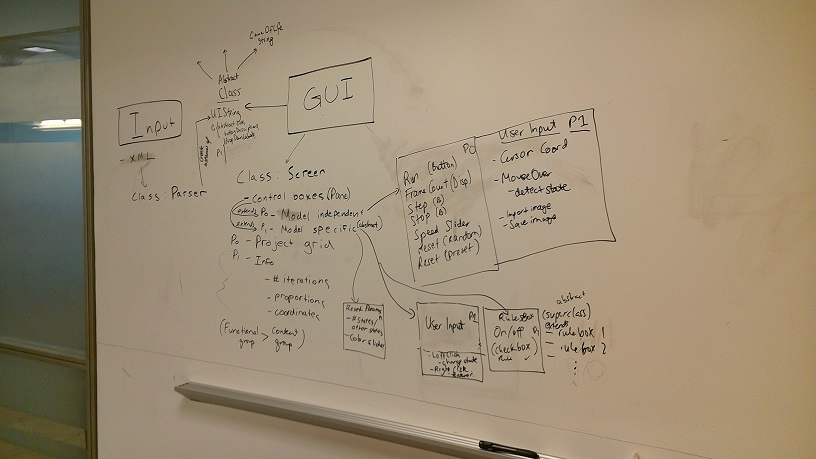 Game Of Life
String
Abstract
Class
UIString
P1
GUI
Input
- XML
Class: Parser
Class: Screen
- Control boxes (Pane)
extends P0 - Model independent
extends P1 - Model specific (abstract)
P0 - Project grid
P1 - Info
- # iterations
- proportions
- coordinates
(Functional > Content
group group)
P0
Run (Button)
Frame Count (Disp)
Step (B)
Stop (B)
Speed Slider
Reset (Random)
Reset (Preset)
User Input P1
- Cursor Coord
- MouseOver
- detect state
- Import image
- Save image
Reset Params
- # States/
other states
- Color slider
User Input P1
- Left Click
- change state
- Right Click
Rules Box
On/off P1
(checkbox)
Rule ✓
abstract
(superclass)
extends
- rulebox 1
- rulebox 2